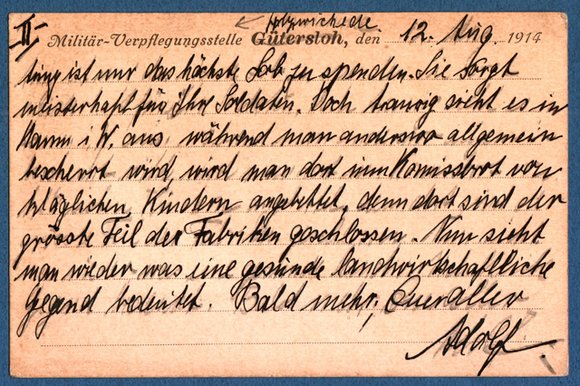 II
Militär-Verpflegungsstelle Gütersloh, den 12. Aug. 1914
tung ist nur das höchste Lob zu spenden. Sie sorgt
meisterhaft für Ihre Soldaten. Doch traurig sieht es in
Hamm i. W. aus, während man anderswo allgemein
beschenkt wird, wird man dort um Komissbrot von
kläglichen Kindern angebettet, denn dort sind der
grösste Teil der Fabriken geschlossen. Nun sieht
man wieder was eine gesunde landwirtschaftliche
Gegend bedeutet. Bald mehr, Euer aller
Adolf